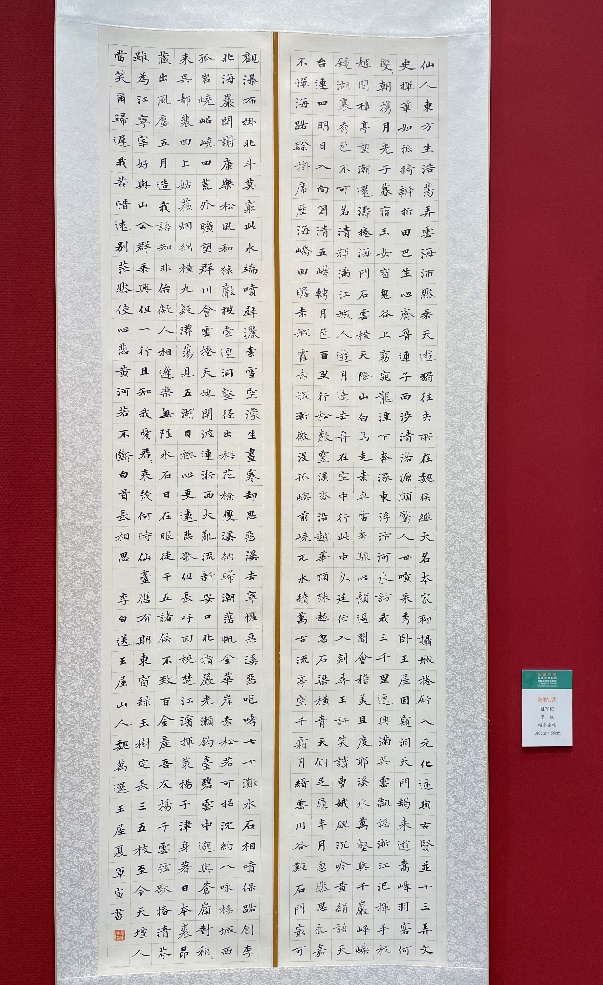 仙人東方生浩蕩弄雲海沛然乘天遊獨往失所在魏侯繼大名本家聊攝城卷舒入元化跡與古賢並十三弄文
史揮筆如振綺辯折田巴生心齊魯連子西涉清洛源頗驚人世喧采秀臥王屋因窺洞天門朅來遊嵩峰羽客何
雙朝攜月光子暮宿玉女窗鬼谷上窈窕龍潭下奔潈東浮汴河水訪我三千里逸興滿吳雲飄颻浙江汜揮手杭
越間樟亭望潮還濤捲海門石雲橫天際山白馬走素車雷奔駭心顏遙聞會稽美且度耶溪水萬壑與千巖崢嶸
鏡湖裏秀色不可名清輝滿江城人遊月邊去舟在空中行此中久延佇入剡尋王許笑讀曹娥碑沉吟黃絹語天
台連四明日入向國清五峰轉月色百里行松聲靈溪恣沿越華頂殊超忽石梁橫青天側足履半月忽然思永嘉
不憚海路賒掛席歷海嶠回瞻赤城霞赤城漸微沒孤嶼前嶢兀水續萬古流亭空千霜月縉雲川谷難石門最可
觀瀑布掛北斗莫窮此水端噴壁灑素雪空濛生晝寒卻思惡溪去寧懼惡溪惡咆哮七十灘水石相噴薄路創李
北海巖開謝康樂松風和猿聲搜索連洞壑徑出梅花橋雙溪納歸潮落帆金華岸赤松若可招沈約八詠樓城西
孤岧嶢岧嶢四荒外曠望群川會雲捲天地開波連浙西大亂流新安口北指嚴光瀨釣臺碧雲中邈與蒼嶺對稍
來吳都裴回上姑蘇煙綿橫九疑漭蕩見五湖目極心更遠悲歌但長吁回橈楚江濱揮策揚子津身著日本裘昂
藏出風塵五月造我語知非儓儗人相逢樂無限水石日在眼徒干五諸侯不致百金產吾友揚子雲弦歌播清芬
雖為江寧宰好與山公群乘興但一行且知我愛君君來幾何時仙臺應有期東窗綠玉樹定長三五枝至今天壇人
當笑爾歸遲我苦惜遠別茫然使心悲黃河若不斷白首長相思 李白送王屋山人魏萬還王屋 夏 書